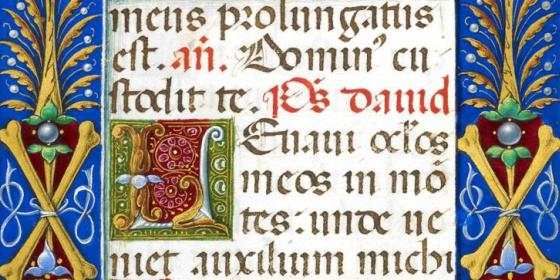 meus prolungatus
est. añ. Domin⁹ cu
stodit te. Ps̃ dauid
LEuaui oc̃los
meos in mō
tes: unde ue
niet auxilium michi